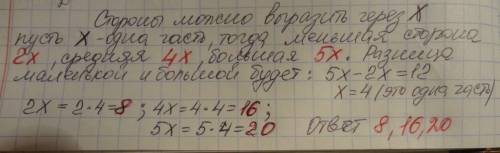 Стороны можно выразить через X
пусть X - одна часть, тогда меньшая сторона
2x, средняя 4x, большая 5x. Разница
маленькой и большой будет: 5x-2x=12
x=4 (это одна часть)
2x=2·4=8; 4x=4·4=16;
5x=5·4=20 Ответ 8,16,20